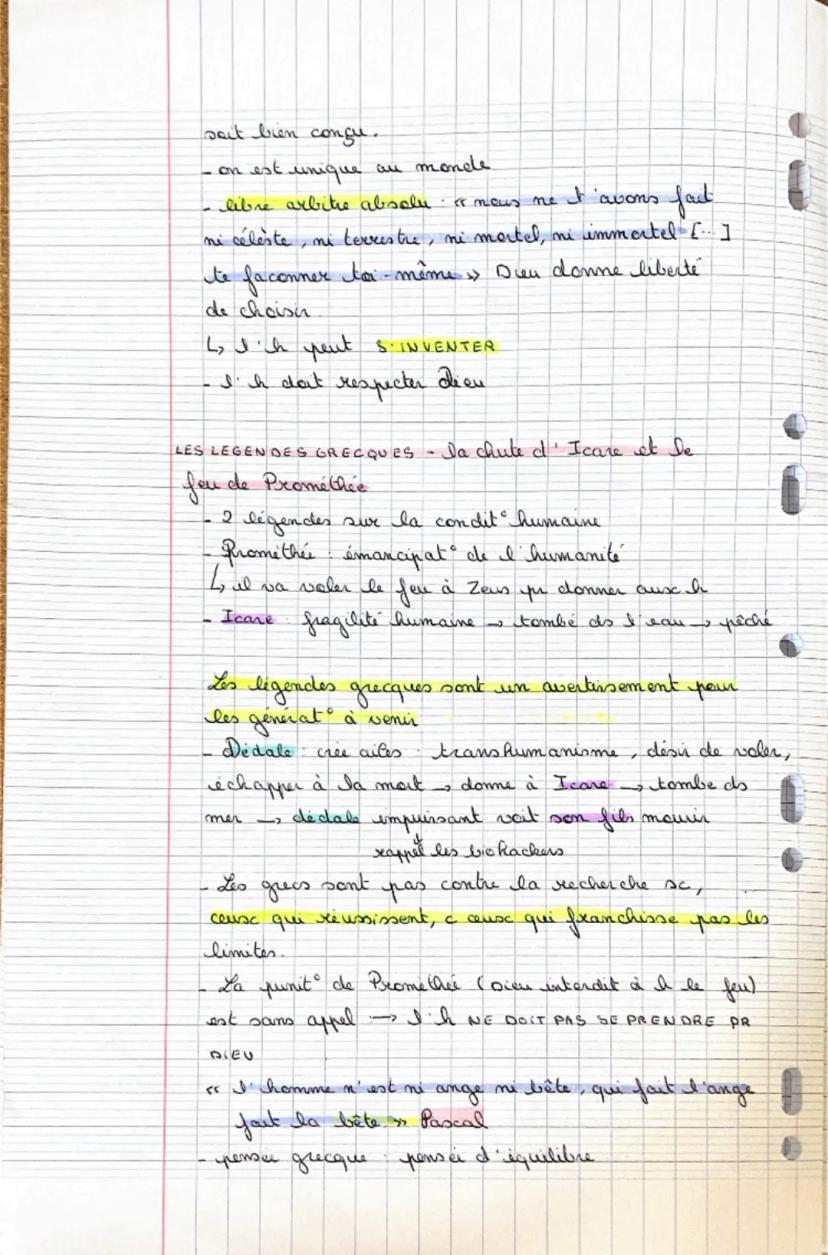 soit bien conçu.
- on est unique au monde
- libre arbitre absolu : « nous ne t'avons fait
ni céleste, ni terrestre, ni mortel, ni immortel [...]
te façonner toi-même » Dieu donne liberté
de choisir.
↳ l'h peut S'INVENTER
- l'h doit respecter Dieu
LES LEGENDES GRECQUES - la chute d'Icare et le
feu de Prométhée
- 2 légendes sur la condit° humaine
- Prométhée : émancipat° de l'humanité
↳ il va voler le feu à Zeus pr donner aux h
- Icare : fragilité humaine → tombé ds l'eau → péché
Les légendes grecques sont un avertissement pour
les générat° à venir
- Dédale : crée ailes : transhumanisme, désir de voler,
échapper à la mort → donne à Icare → tombe ds
mer → dédale impuissant voit son fils mourir
↓
rappel les biohackers
- Les grecs sont pas contre la recherche sc,
ceux qui réussissent, c ceux qui franchisse pas les
limites.
- La punit° de Prométhée (Dieu interdit à h le feu)
est sans appel → l'h NE DOIT PAS SE PRENDRE PR
DIEU
« l'homme n'est ni ange ni bête, qui fait l'ange
fait la bête » Pascal
- pensée grecque : pensée d'équilibre